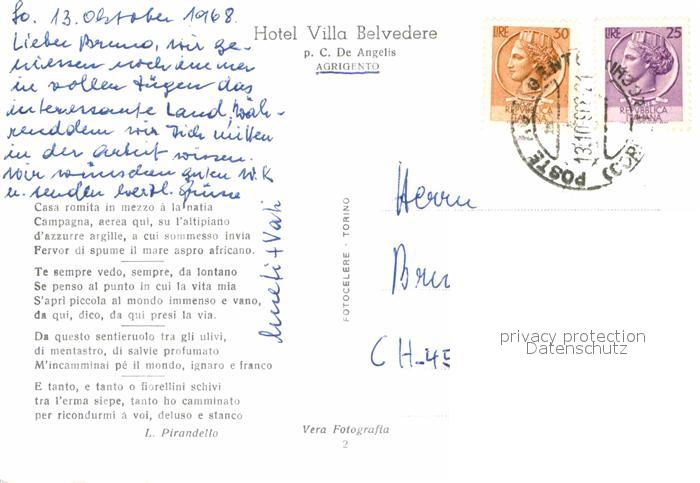 So. 13. Oktober 1968.
Lieber Bruno, wir ge-
niessen noch immer
in vollen Zügen das
interessante Land, Wäh-
renddem wir Dich mitten
in der Arbeit wissen.
Wir wünschen guten W.K
u. senden herzl. Grüsse
Mueti + Vati
Hotel Villa Belvedere
p. C. De Angelis
AGRIGENTO
LIRE 30
REPVBBLICA
ITALIANA
LIRE 25
REPVBBLICA
ITALIANA
POSTE
13.10.68
Casa romita in mezzo à la natia
Campagna, aerea qui, su l'altipiano
d'azzurre argille, a cui sommesso invia
Fervor di spume il mare aspro africano.
Te sempre vedo, sempre, da lontano
Se penso al punto in cui la vita mia
S'aprì piccola al mondo immenso e vano,
da qui, dico, da qui presi la via.
Da questo sentieruolo tra gli ulivi,
di mentastro, di salvie profumato
M'incamminai pé il mondo, ignaro e franco
E tanto, e tanto o fiorellini schivi
tra l'erma siepe, tanto ho camminato
per ricondurmi à voi, deluso e stanco
L. Pirandello
FOTOCELERE - TORINO
Vera Fotografia
2
Herrn
Bru
CH-45
privacy protection
Datenschutz